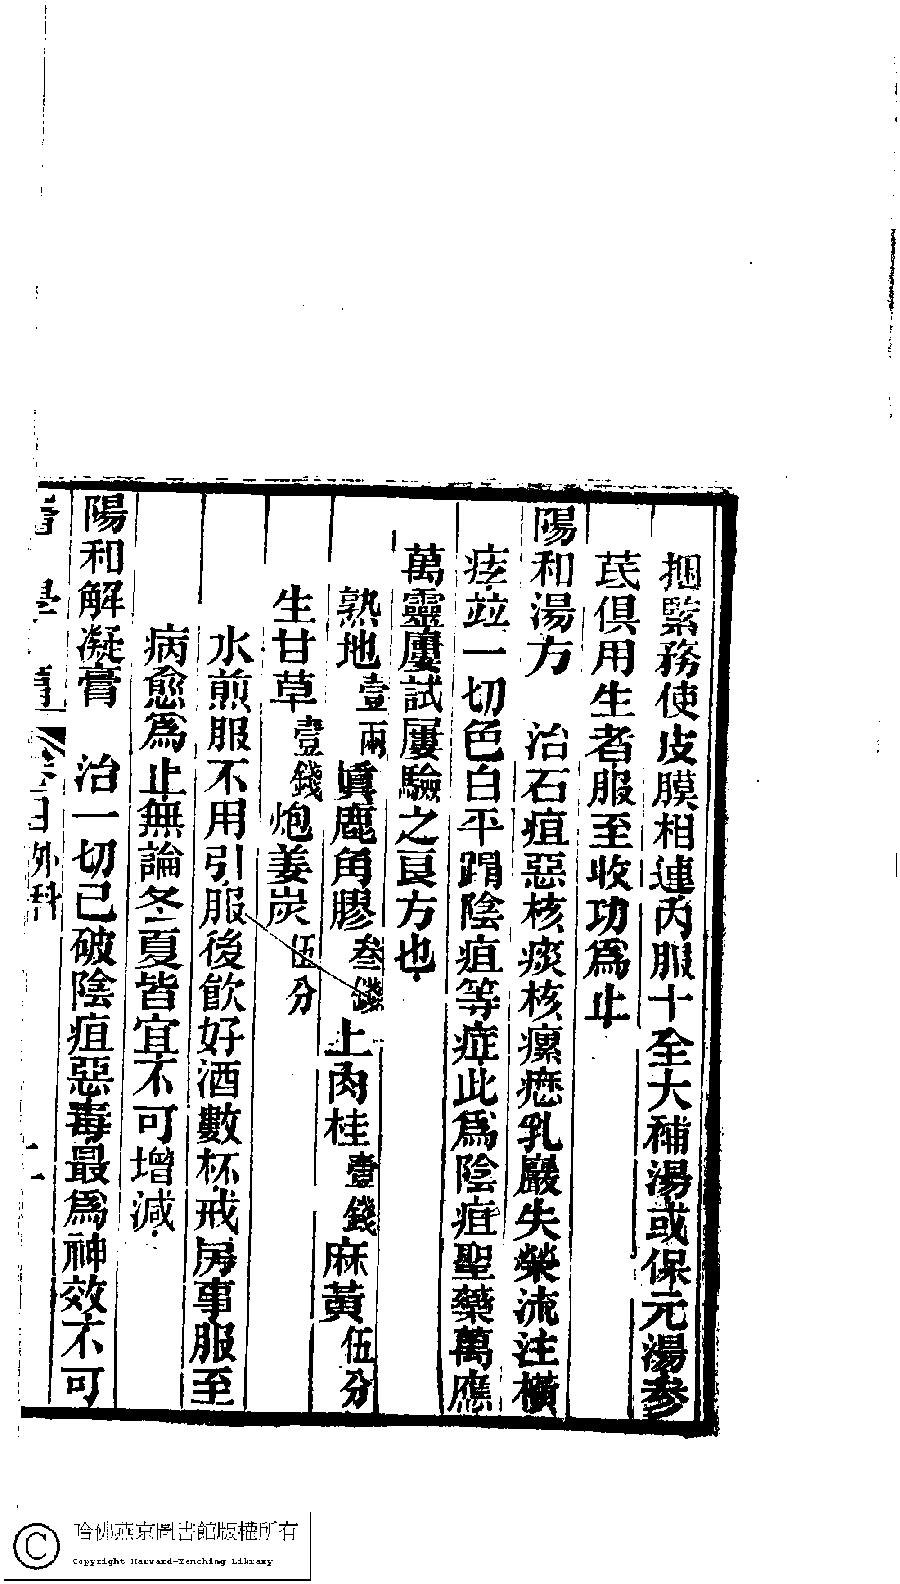 捆緊務使皮膜相連內服十全大補湯或保元湯參
芪俱用生者服至收功為止
陽和湯方　治石疽惡核痰核瘰癧乳巖失榮流注橫
痃竝一切色白平蹋陰疽等症此為陰疽聖藥萬應
萬靈屢試屢驗之良方也
熟地壹兩眞鹿角膠叁錢上肉桂壹錢麻黃伍分
生甘草壹錢炮姜炭伍分
水煎服不用引服後飮好酒數杯戒房事服至
病愈為止無論冬夏皆宜不可增減
陽和解凝膏　治一切已破陰疽惡毒最為神效不可
外科
哈佛燕京圖書館版權所有
Copyright Harvard-Yenching Library